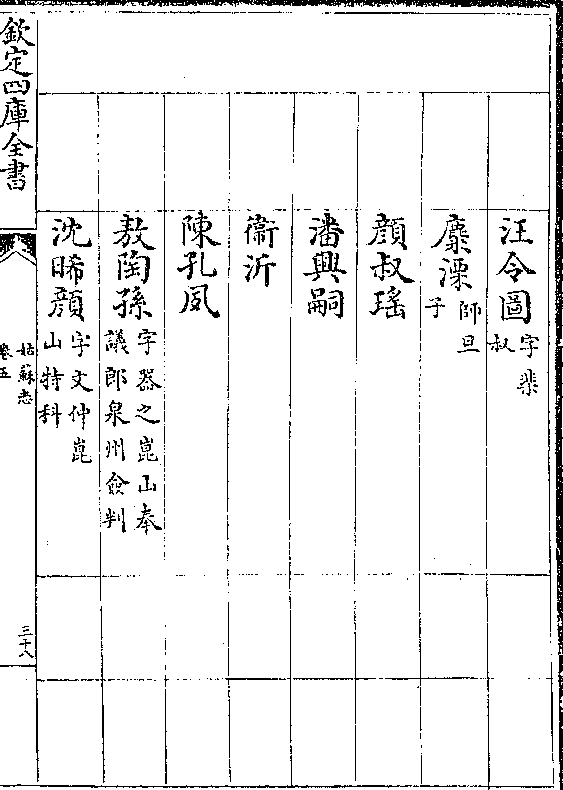 汪令圖字棐叔
麋溧師旦子
顔叔瑤
潘興嗣
衛沂
陳孔夙
敖陶孫字器之崑山奉議郎泉州僉判
沈晞顔字文仲崑山特科
欽定四庫全書
姑蘇志
卷五
三十八